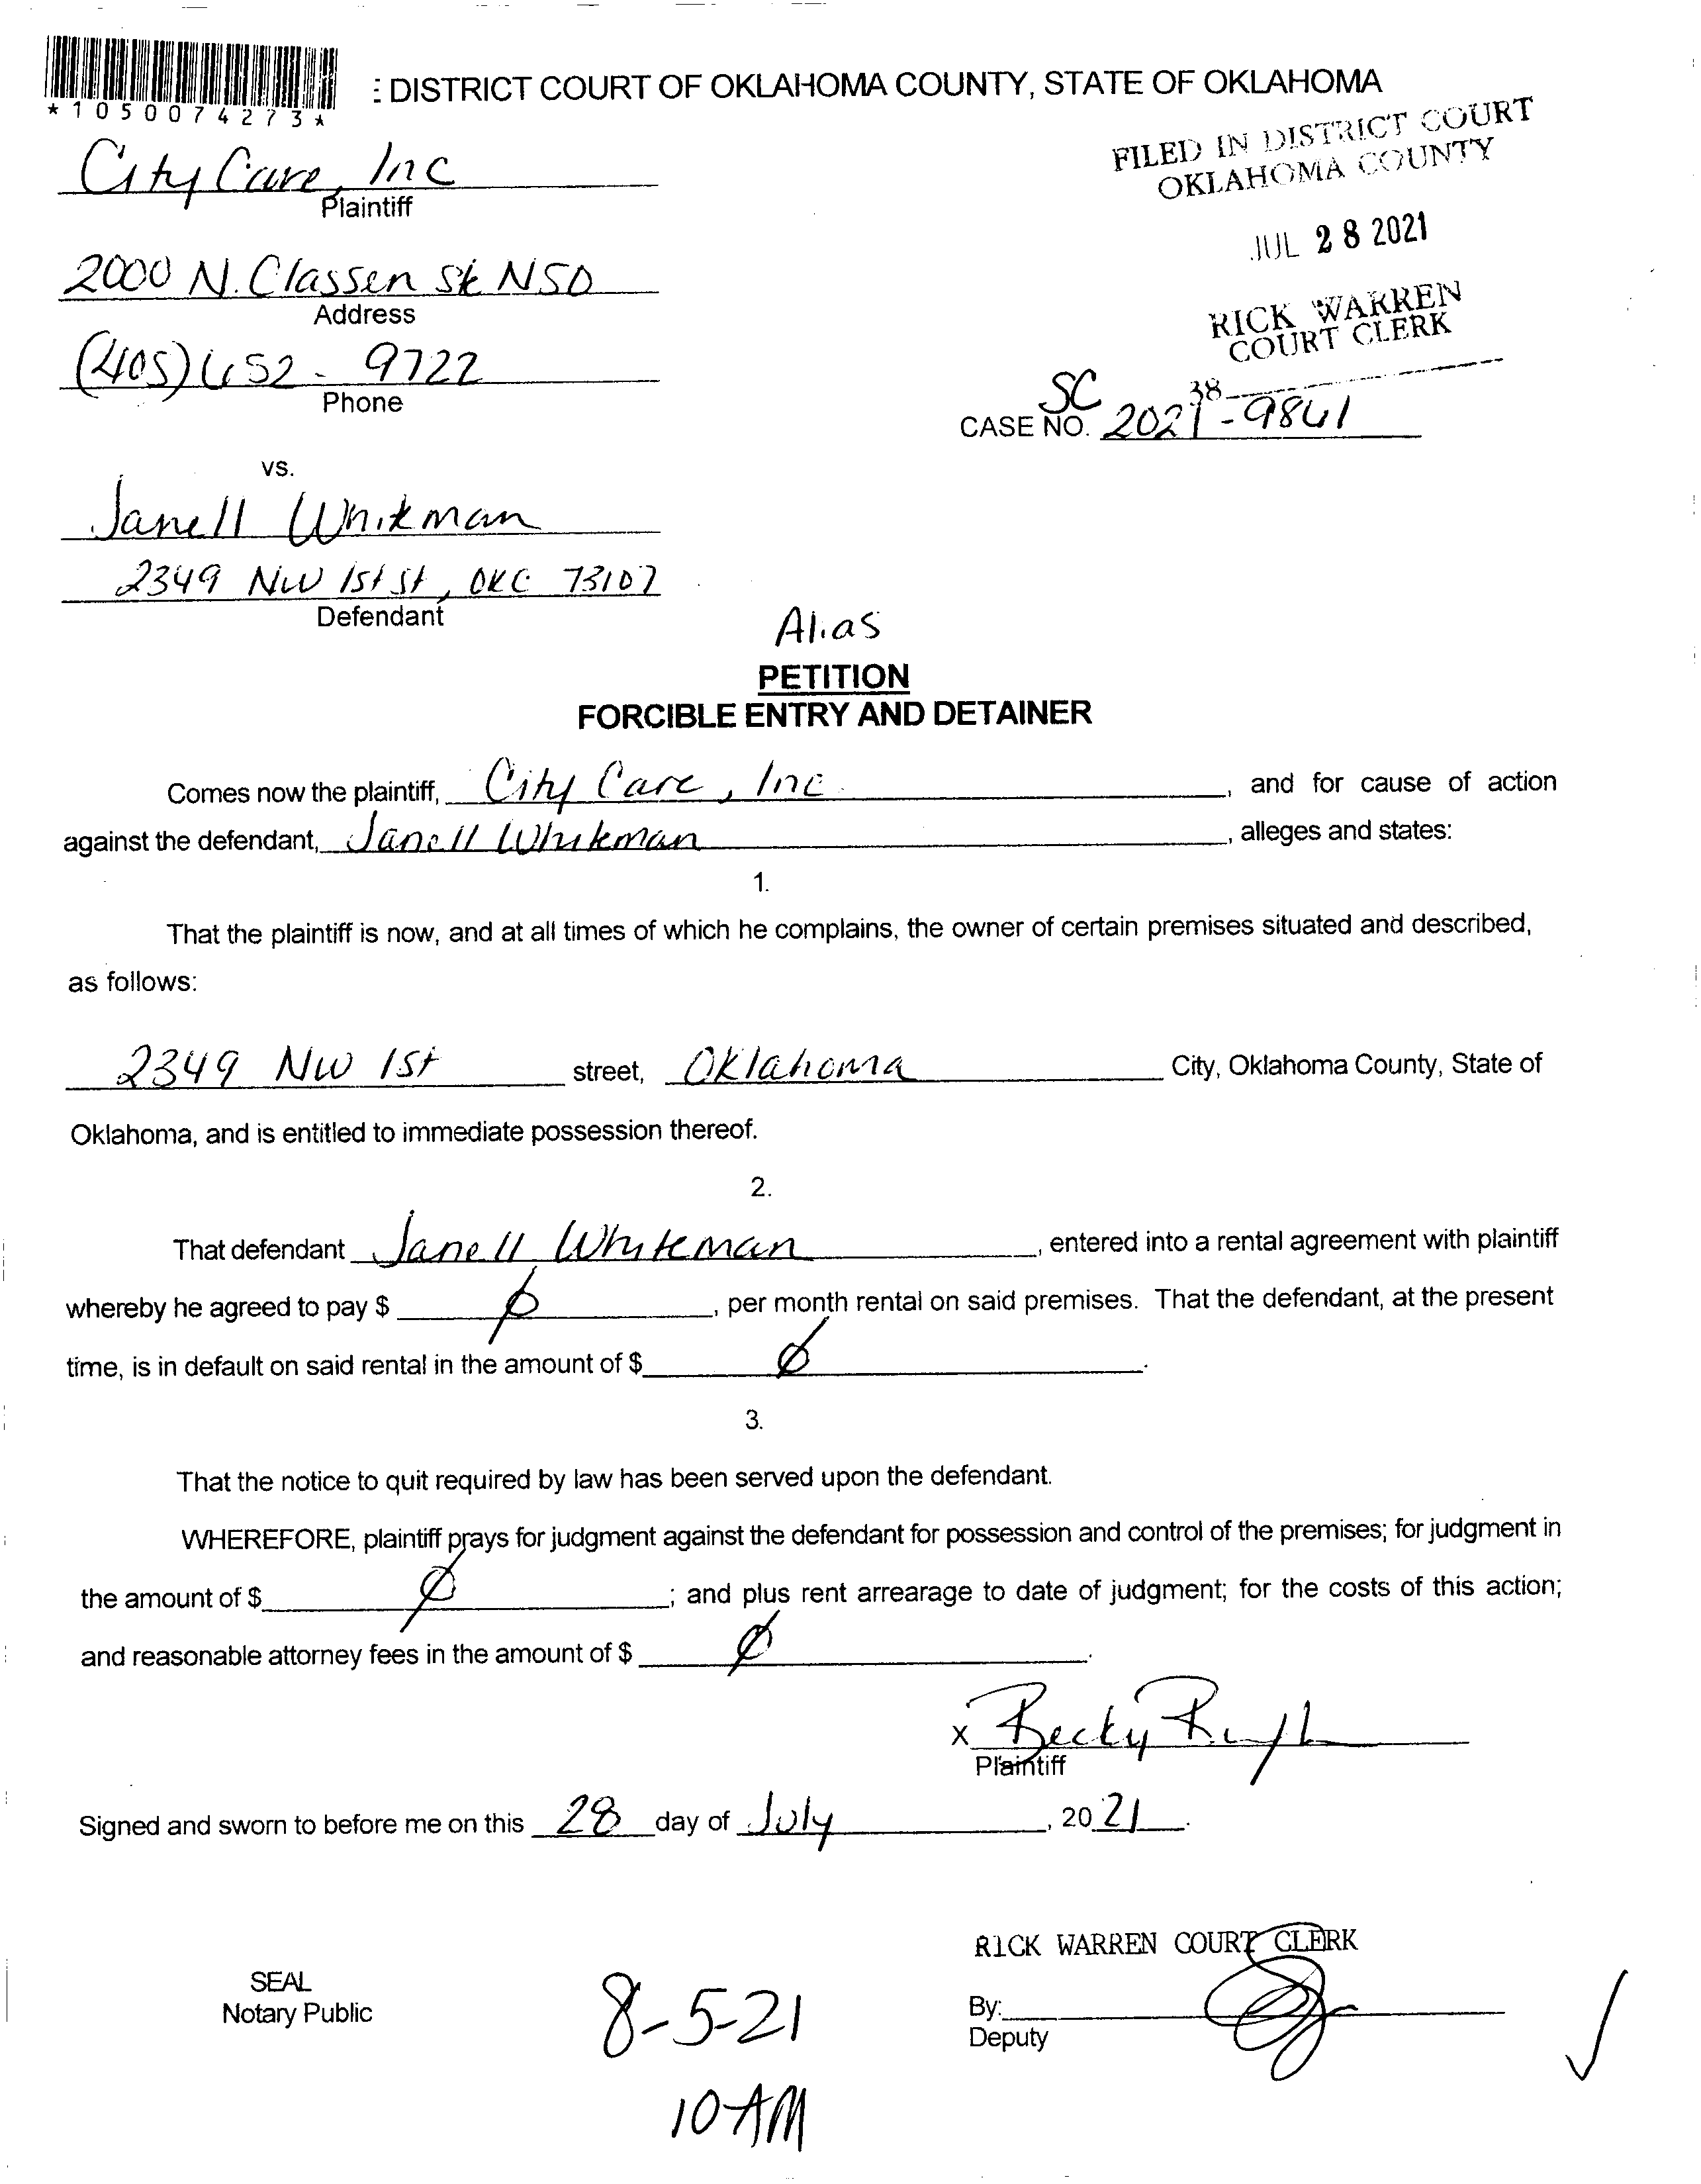 *1050074273*
: DISTRICT COURT OF OKLAHOMA COUNTY, STATE OF OKLAHOMA
FILED IN DISTRICT COURT
OKLAHOMA COUNTY
JUL 28 2021
RICK WARREN
COURT CLERK
38
City Care, Inc
Plaintiff
2000 N. Classen Ste N50
Address
(405) 652-9722
Phone
SC
CASE NO. 2021-9861
vs.
Janell Whiteman
2349 NW 1st St, OKC 73107
Defendant
Alias
PETITION
FORCIBLE ENTRY AND DETAINER
Comes now the plaintiff, City Care, Inc. , and for cause of action
against the defendant, Janell Whiteman , alleges and states:
1.
That the plaintiff is now, and at all times of which he complains, the owner of certain premises situated and described,
as follows:
2349 NW 1st street, Oklahoma City, Oklahoma County, State of
Oklahoma, and is entitled to immediate possession thereof.
2.
That defendant Janell Whiteman , entered into a rental agreement with plaintiff
whereby he agreed to pay $ ∅ , per month rental on said premises. That the defendant, at the present
time, is in default on said rental in the amount of $ ∅ .
3.
That the notice to quit required by law has been served upon the defendant.
WHEREFORE, plaintiff prays for judgment against the defendant for possession and control of the premises; for judgment in
the amount of $ ∅ ; and plus rent arrearage to date of judgment; for the costs of this action;
and reasonable attorney fees in the amount of $ ∅ .
X Becky
Plaintiff
Signed and sworn to before me on this 28 day of July , 20 21 .
RICK WARREN COURT CLERK
SEAL
Notary Public
By:
Deputy
8-5-21
10 AM